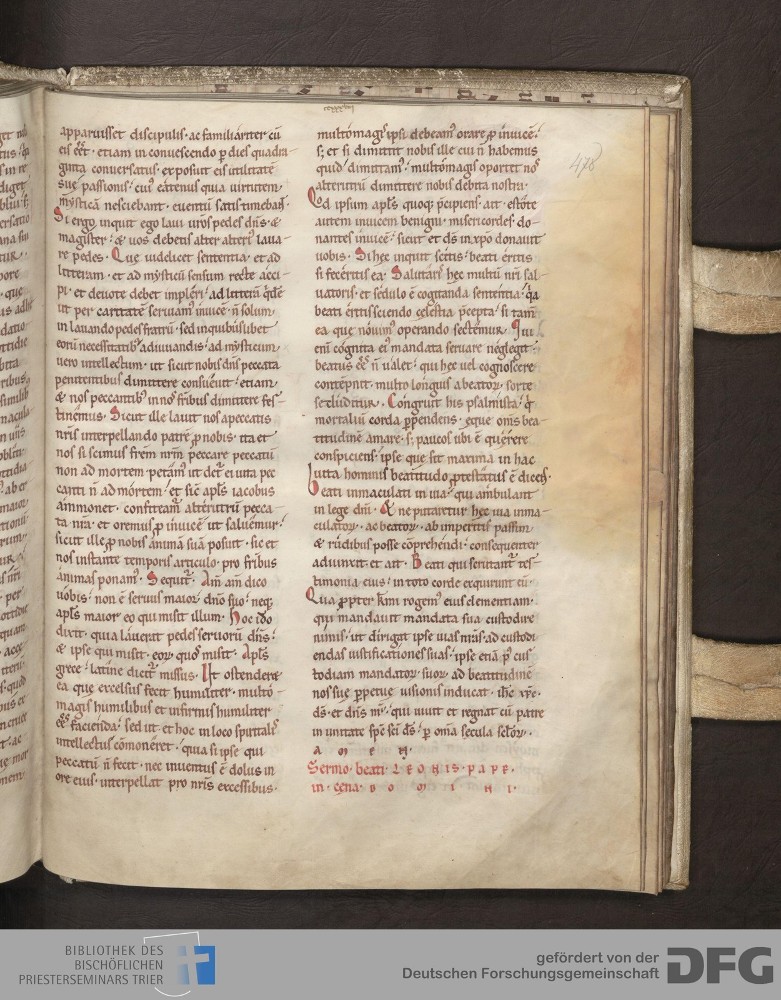 apparuisset discipulis· ac familiariter cū
eis eēt· etiam in conuescendo p̱ dies quadra-
ginta conuersatus· exposuit eis utilitatē
suę passionis· cui⁹ eatenus quia uirtutem
mysticā nesciebant· euentū satis timebaṅt·
Si ergo inquit ego laui ur̄os pedes dn̄s· &
magister· & uos debetis alter alteri⁹ laua-
re pedes· Quę uidelicet sententia· et ad
litteram· et ad mysticū sensum recte acci-
pi· et deuote debet impleri· ad litterā qͥdē
ut per caritatē seruiam⁹ inuicē· n̄ solum
in lauando pedes fratrū· sed in quibuslibet
eorū necessitatib⁹ adiuuandis· ad mysticum
uero intellectum· ut sicut nobis dn̄s peccata
penitentibus dimittere consueuit· etiam
& nos peccantib⁹ in nos fr̄ibus dimittere fes-
tinemus· Sicut ille lauit nos a peccatis
nr̄is interpellando patrē ꝓ nobis· ita et
nos si scimus frēm nr̄m peccare peccatū
non ad mortem· petam⁹ ut det̄ ei uita pec
canti n̄ ad mortem· et sic̄ apl̄s iacobus
ammonet· confiteam̄ alterutrū pecca-
ta nr̄a· et oremus ꝓ inuicē ut saluemur·
sicut ille ꝓ nobis animā suā posuit· sic et
nos instante temporis articulo· pro fr̄ibus
animas ponam⁹· Sequit̄· Am̄ am̄ dico
uobis· non ē seruus maior dn̄o suo· neq;
apl̄s maior eo qui misit illum· Hoc iđo
dixit· quia lauerat pedes seruorū dn̄s·
& ipse qui misit· eoꝝ quos misit· Apl̄s
grece· latine dicit̄ missus· Ut ostendere
ea que excelsus fecit humiliter· multo-
magis humilibus et infirmis humiliter
eē̄ facienda· sed ut et hoc in loco spiritalit̄
intellectus cōmoneret· quia si ipse qui
peccatū n̄ fecit· nec inuentus ē dolus in
ore eius· interpellat pro nr̄is excessibus·
multomagis ipsi debeam⁹ orare ꝓ inuicē·
s; et si dimittit nobis ille cui n̄ habemus
quid dimittam⁹· multomagis oportet nos
alterutrū dimittere nobis debita nostra·
Qđ ipsum apl̄s quoq; p̄cipiens ait· estote
autem inuicem benigni· misericordes· do-
nantes inuicē· sicut et ds̄ in xp̄o donauit
uobis· Si hęc inquit scitis· beati eritis
si feceritis ea· Salutari hęc multū nr̄i sal-
uatoris· et sedulo ē cogitanda sententia· qͣa
beati eritis sciendo cęlestia p̄cepta· si tam̄
ea que nouim⁹ operando sectemur· Qui
eni cognita ei⁹ mandata seruare neglegit·
beatus eē n̄ ualet· qui hęc uel cognoscere
contēpnit· multo longius a beatoꝝ sorte
secluditur· Congruit his psalmista· qͥ
mortaliū corda ꝑpendens· eque om̄s bea-
titudinē amare· s; paucos ubi ē querere
conspiciens· ipse que sit maxima in hac
uita hominis beatitudo ꝓtestatus ē dicens·
Beati inmaculati in uia· qui ambulant
in lege dn̄i· & ne putaretur hęc uia inma-
culatoꝝ· ac beatoꝝ· ab imperitis passim
& rudibus posse cōprehendi· consequenter
adiunxit et ait· Beati qui scrutant̄ tes-
timonia eius· in toto corde exquirunt eū·
Qua ꝓpter k̄mi rogem⁹ eius clementiam·
qui mandauit mandata sua custodire
nimis· ut dirigat ipse uias nr̄as· ad custodi
endas iustificationes suas· ipse etiā ꝑ cus
todiam mandatoꝝ suoꝝ· ad beatitudinē
nos suę perpetuę uisionis inducat· ih̄c xp̄e·
ds̄· et dn̄s nr̄· qui uiuit et regnat cū patre
in unitate sp̄c sc̄i ds̄· ꝑ om̄a secula scl̄oꝝ·
A M E N·
Sermo· beati· LEONIS· PAPE·
in· cęna· DOMINI·
478
BIBLIOTHEK DES
BISCHÖFLICHEN
PRIESTERSEMINARS TRIER
gefördert von der
Deutschen Forschungsgemeinschaft
DFG